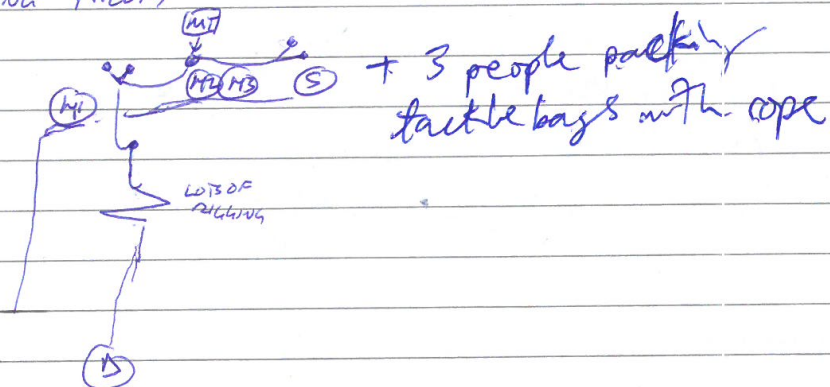 MI
M2 M3 S + 3 people packing
M1 tackle bags with rope
LOTS OF
RIGGING
D